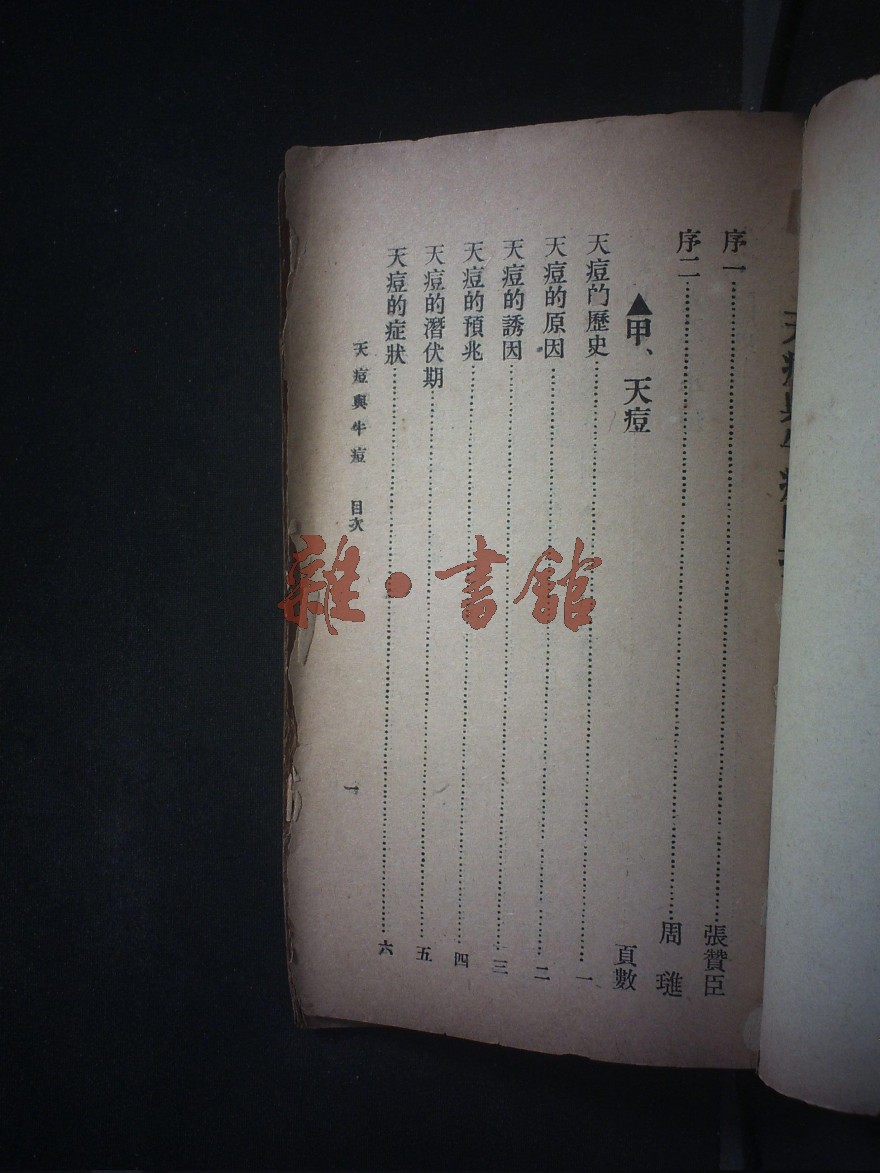 序一……張贊臣
序二……周 璡
▲甲、天痘 頁數
天痘的歷史……一
天痘的原因……二
天痘的誘因……三
天痘的預兆……四
天痘的潛伏期……五
天痘的症狀……六
天痘與牛痘 目次 一
雜·書館